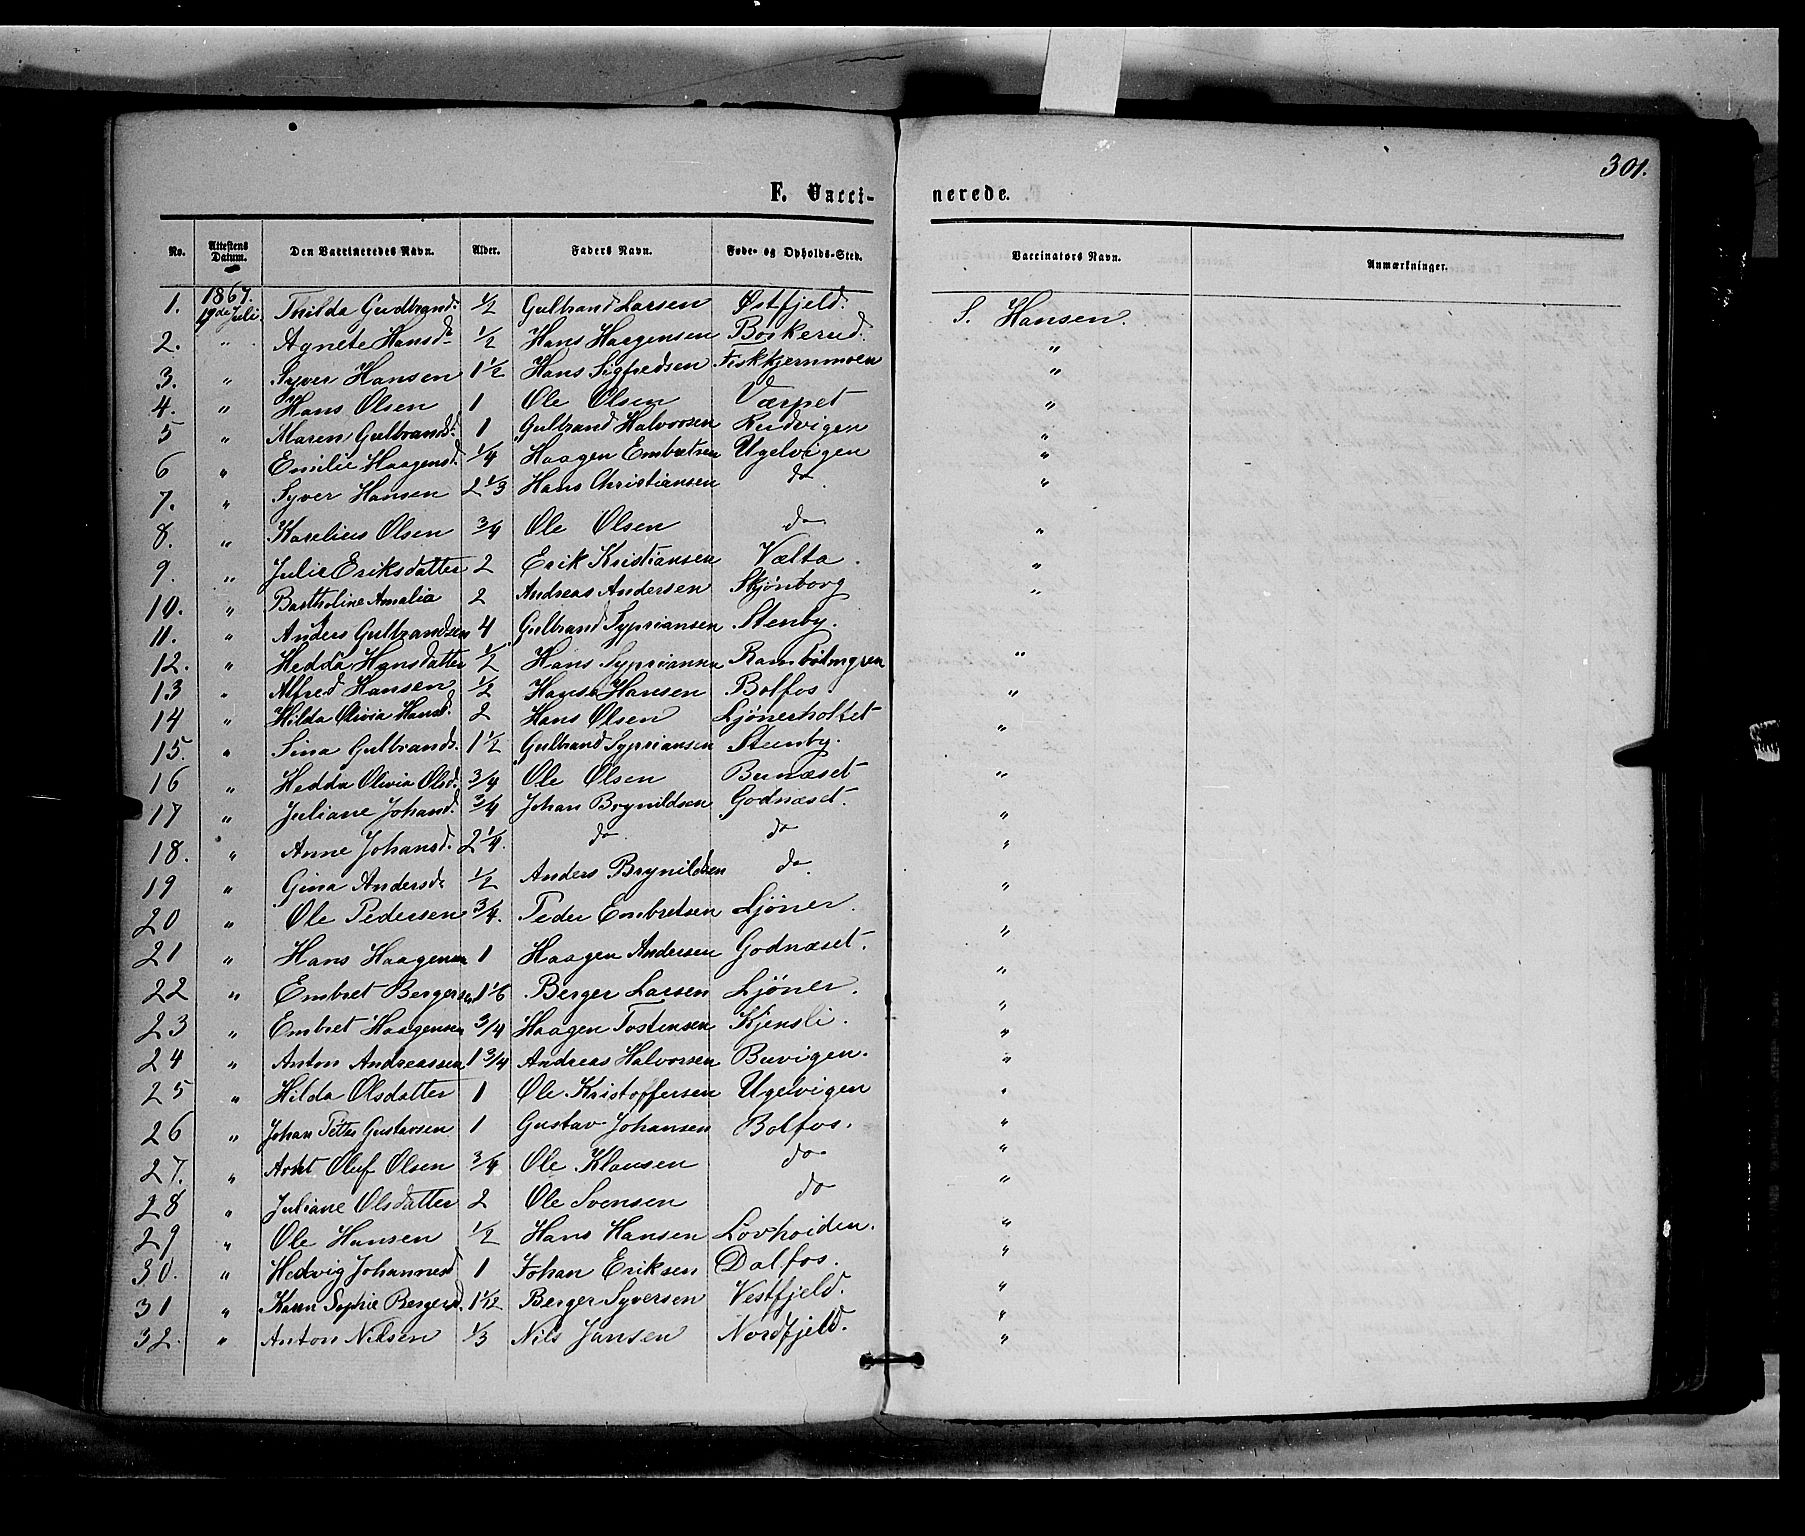 301.
F. Vacci- nerede.
No. Attestens Datum. Den Vaccineredes Navn. Alder. Faders Navn. Føde- og Opholds-Sted. Vaccinators Navn. Anmærkninger.
1867.
1. 19de Juli. Thilda Gudbrand. 1/2 Gulbrand Larsen Østfjeld. S. Hansen.
2. " Agnete Hansd. 1/2 Hans Haagensen Boskerud. "
3. " Syver Hansen 1 1/2 Hans Sigfredsen Fiskkjernmoen "
4. " Hans Olsen 1 Ole Olsen Værpet "
5 " Maren Gulbrandsd. 1 Gulbrand Halvorsen "
6 " Emilie Haagensd. 1/4 Haagen Embretsen Ugelvigen "
7. " Syver Hansen 2 1/3 Hans Christiansen do "
8. " Karelius Olsen 3/4 Ole Olsen do "
9. " Julie Eriksdatter 2 Erik Kristiansen Vælta. "
10. " Bartholine Amalia 2 Andreas Andersen Skjønborg "
11. " Anders Gulbrandsen 4 Gulbrand Syprianssen Stenby.
12. " Hedda Hansdatter 1/2 Hans Syprianssen "
13 " Alfred Hansen 1/2 Hans Hansen Bolfos. "
14 " Hilda Olivia Hansd. 2 Hans Olsen Ljønerholtet "
15. " Sina Gulbrands. 1 1/2 Gulbrand Sypriansen Steenby.
16 " Hedda Olivia Olsd. 3/4 Ole Olsen Bunæset "
17 " Juliane Johansd. 3/4 Johan Brynildsen Godnæset. "
18. " Anne Johansd. 2 1/4. do do "
19 " Gina Andersd. 1/2 Anders Brynildsen do. "
20 " Ole Pedersen 3/4. Peder Embretsen Ljøner. "
21 " Hans Haagensen 1 Haagen Andersen Godnæset. "
22 " Embret Bergersen 1 1/6 Berger Larsen Ljøner. "
23 " Embret Haagensen 3/4 Haagen Tostensen Kjensli. "
24 " Anton Andreassen 1 3/4 Andreas Halvorsen Buvigen. "
25 " Hilda Olsdatter 1 Ole Kristoffersen Ugelvigen "
26 " Johan Petter Gustavsen 1 Gustav Johansen Bolfos. "
27. " Arnt Oluf Olsen 3/4 Ole Klausen do "
28 " Juliane Olsdatter 2 Ole Svensen do "
29 " Ole Hansen 1/2 Hans Hansen Løvhoiden. "
30. " Hedvig Johannesd 1 Johan Eriksen Dalfos. "
31 " Karen Sophie Bergersd. 1 1/12 Berger Syversen Vestfjeld. "
32. " Anton Nilsen 1/3 Nils Jansen Nordfjeld. "